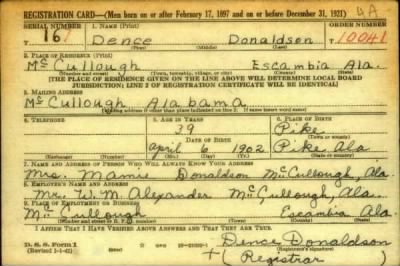 REGISTRATION CARD—(Men born on or after February 17, 1897 and on or before December 31, 1921) 4A
SERIAL NUMBER 1. NAME (Print) ORDER NUMBER
161 Dence Donaldson 10041
(First) (Middle) (Last)
2. PLACE OF RESIDENCE (Print)
McCullough Escambia Ala.
(Number and street) (Town, township, village, or city) (County) (State)
[THE PLACE OF RESIDENCE GIVEN ON THE LINE ABOVE WILL DETERMINE LOCAL BOARD
JURISDICTION; LINE 2 OF REGISTRATION CERTIFICATE WILL BE IDENTICAL]
3. MAILING ADDRESS
McCullough Alabama
[Mailing address if other than place indicated on line 2. If same insert word same]
4. TELEPHONE 5. AGE IN YEARS 6. PLACE OF BIRTH
39 Pike
DATE OF BIRTH (Town or county)
April 6 1902 Pike Ala
(Exchange) (Number) (Mo.) (Day) (Yr.) (State or country)
7. NAME AND ADDRESS OF PERSON WHO WILL ALWAYS KNOW YOUR ADDRESS
Mrs. Mamie Donaldson McCullough, Ala.
8. EMPLOYER'S NAME AND ADDRESS
Mr. W. M. Alexander McCullough, Ala.
9. PLACE OF EMPLOYMENT OR BUSINESS
McCullough Escambia Ala
(Number and street or R. F. D. number) (Town) (County) (State)
I AFFIRM THAT I HAVE VERIFIED ABOVE ANSWERS AND THAT THEY ARE TRUE.
D. S. S. Form 1 Dence Donaldson
(Revised 1-1-42) (Registrant's signature)
+ (Registrar